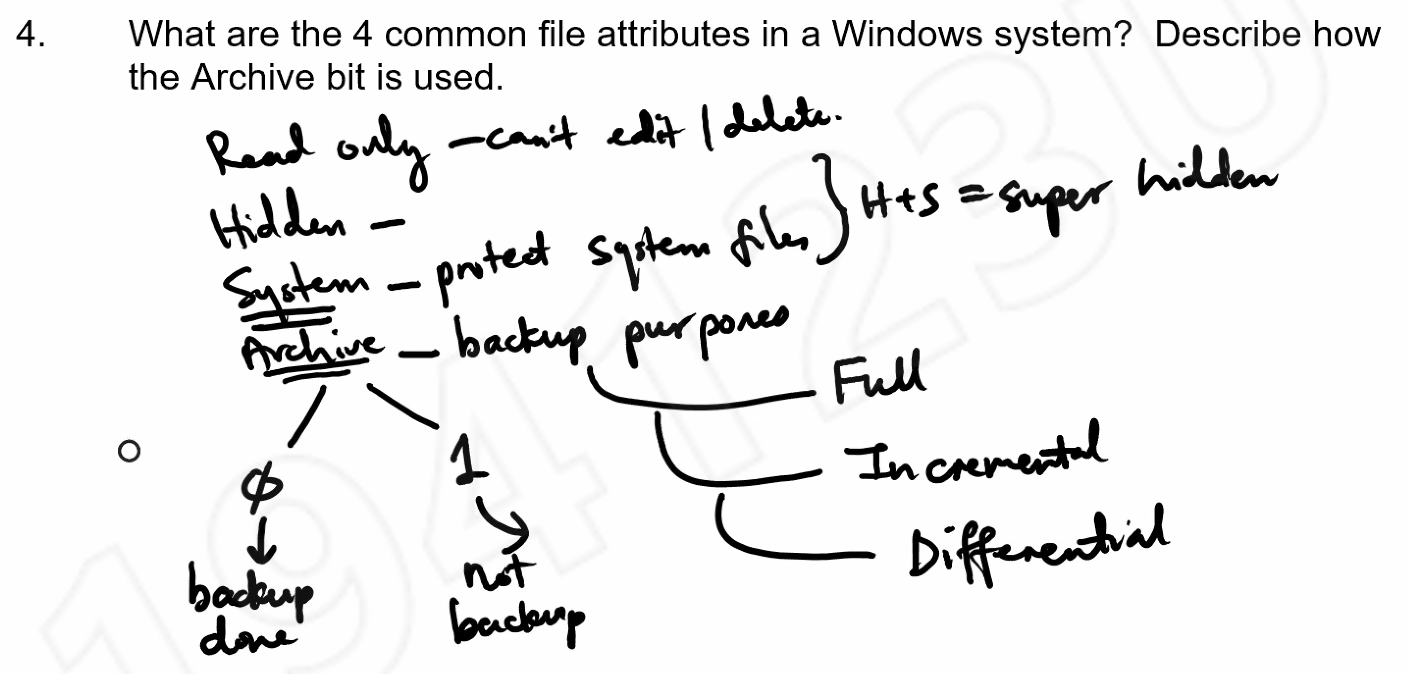 4. What are the 4 common file attributes in a Windows system? Describe how
the Archive bit is used.
Read only - can't edit / delete.
Hidden -
System - protect system files } H+S = super hidden
Archive - backup purposes
Full
Incremental
Differential
0 1
backup done
not backup
194123U